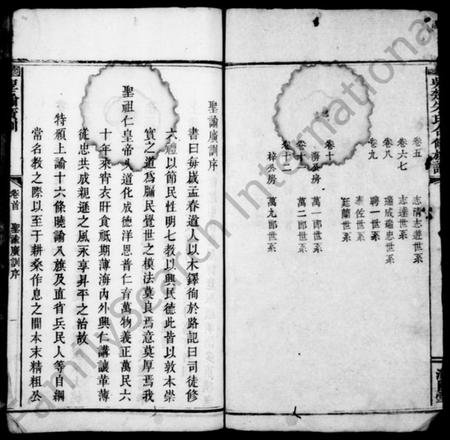 卷五 志清志達世系
卷六七 志達世系
卷八
卷九 聘一世系
泰佐世系
廷蘭世系
卷十
萬一郎世系
卷十一
萬二郎世系
卷十二
萬九郎世系
聖諭廣訓
卷首 聖諭廣訓序 一
聖諭廣訓序
書曰每歲孟春遒人以木鐸徇於路記曰司徒修
六禮以節民性明七教以興民德此皆以敦本崇
實之道為牖民覺世之模法莫良焉意莫厚焉我
聖祖仁皇帝久道化成德洋恩普仁育萬物義正萬民六
十年來宵衣旰食祗期薄海內外興仁講讓革薄
從忠共成親遜之風永享昇平之治故
特頒上諭十六條曉諭八旗及直省兵民人等自綱
常名教之際以至于耕桑作息之間本末精粗公
FamilySearch International